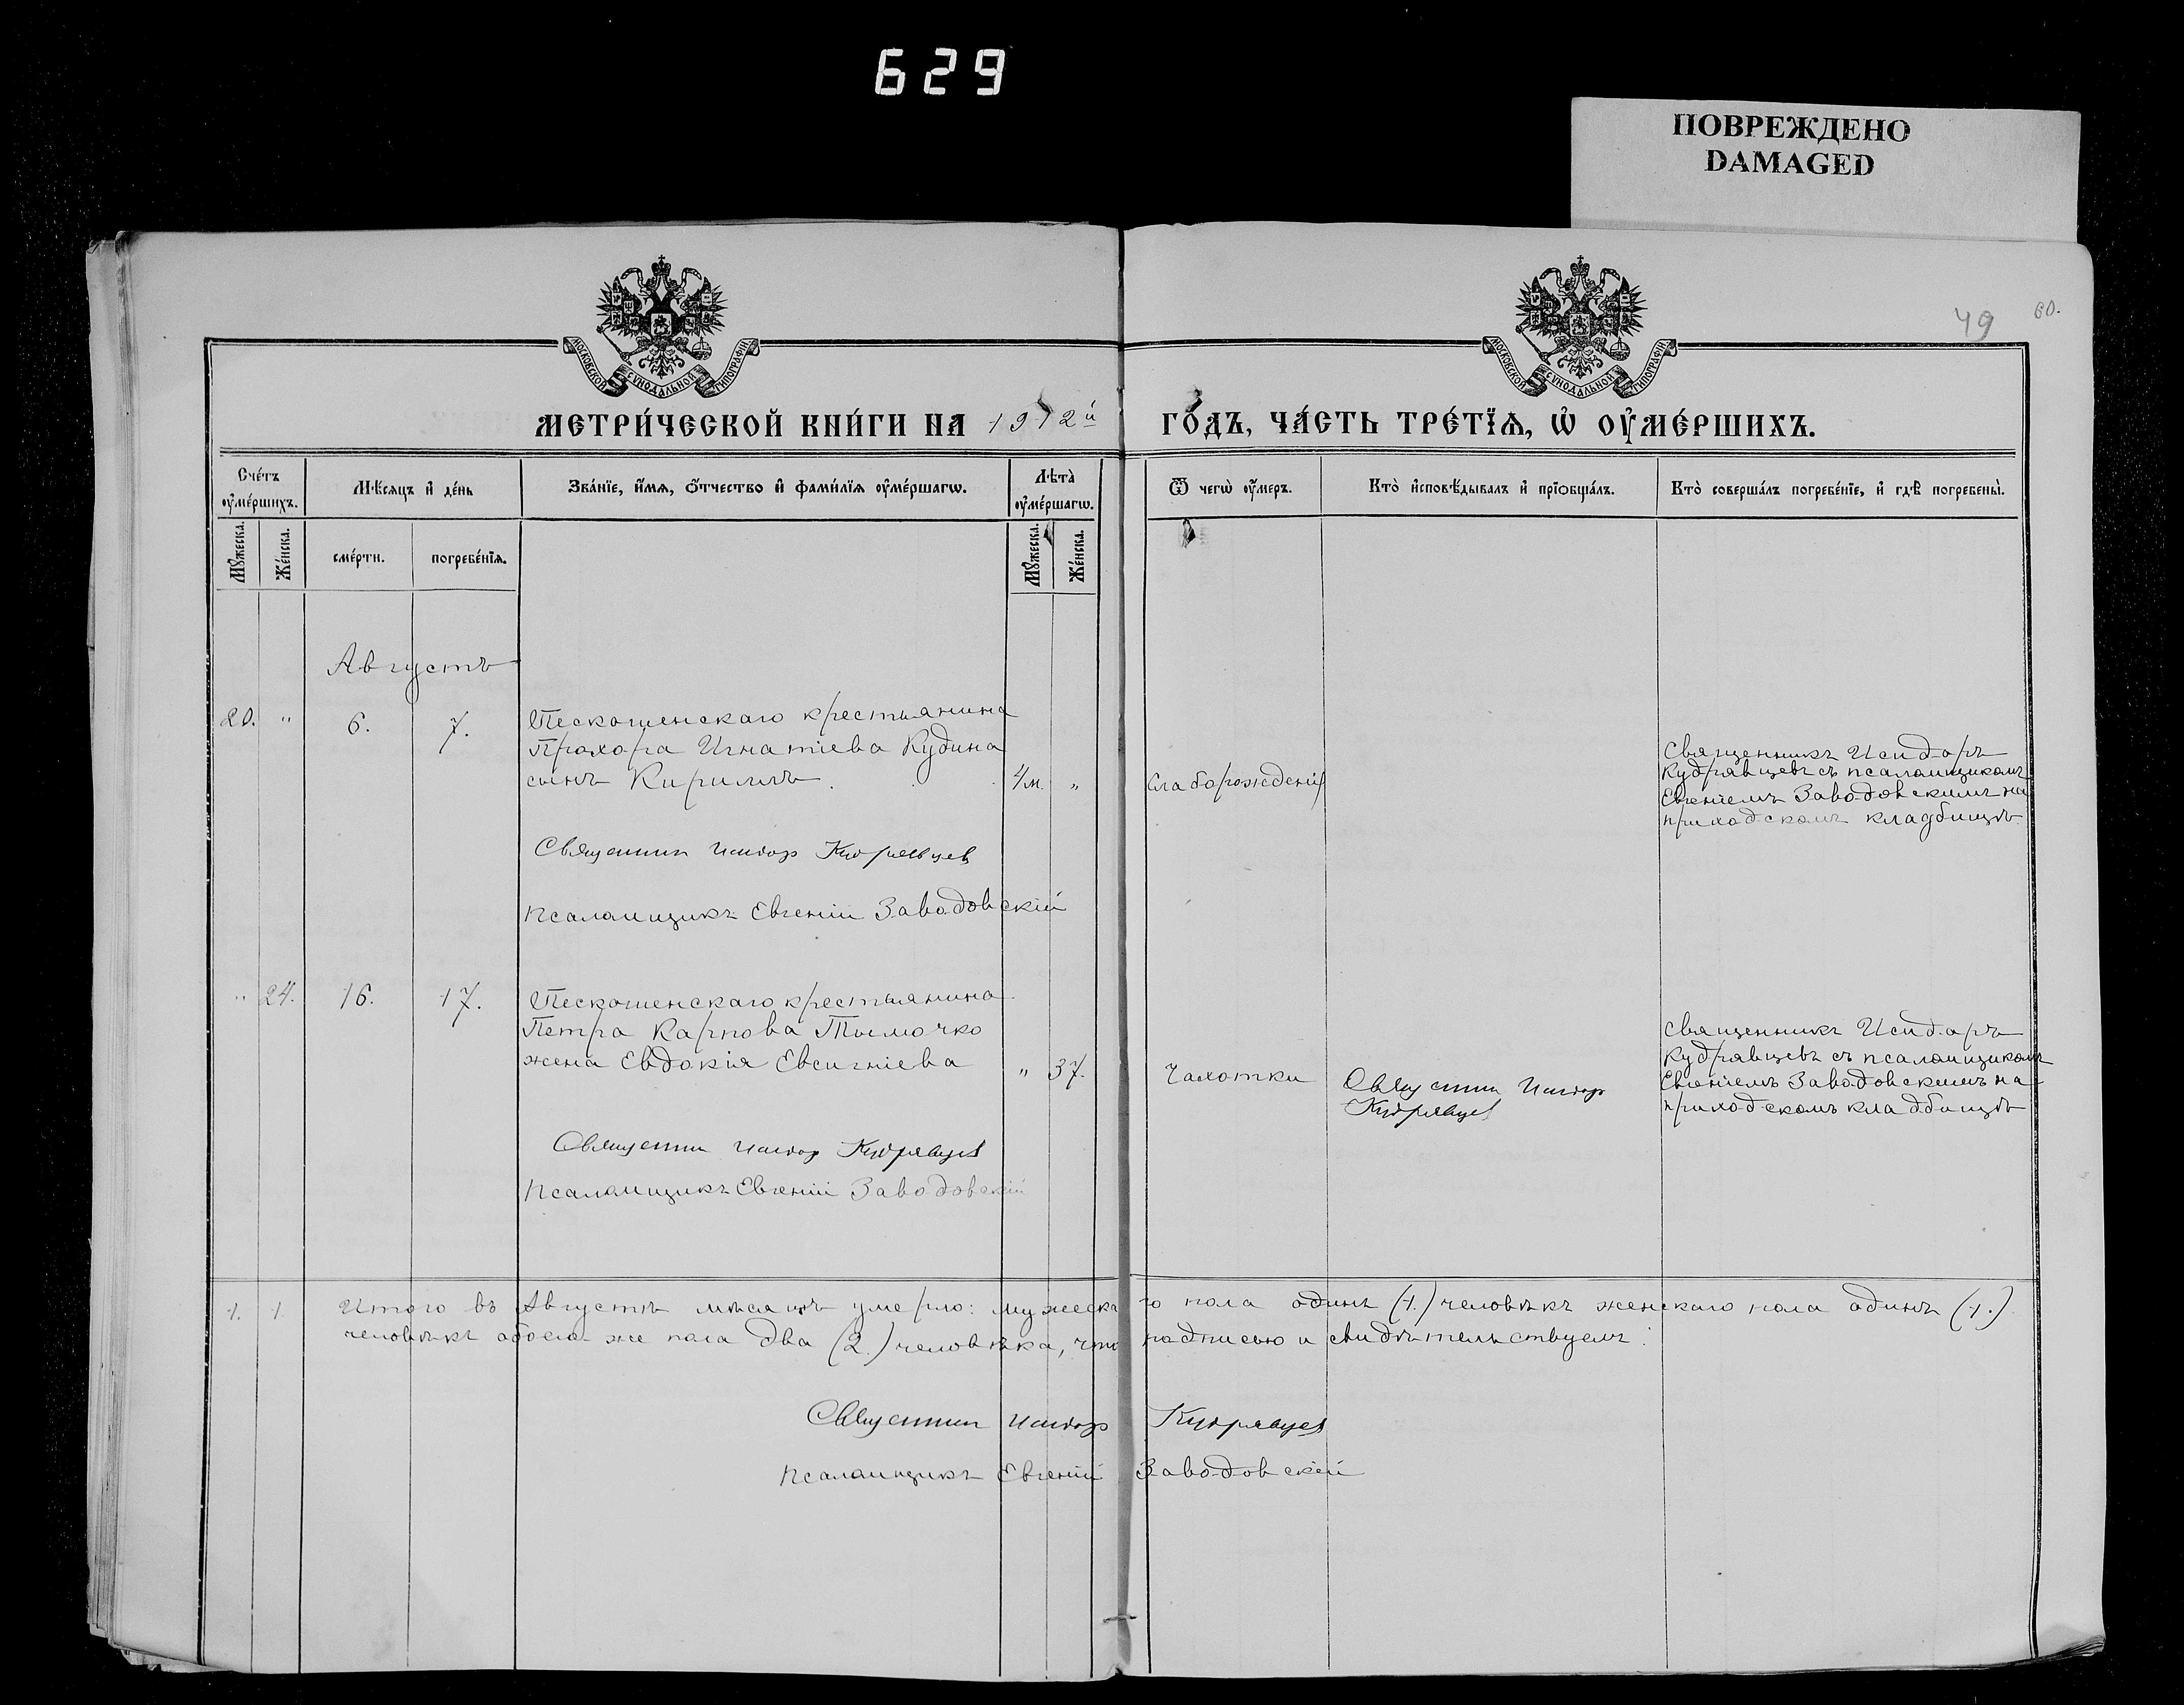 629
ПОВРЕЖДЕНО
DAMAGED
49 60.
МОСКОВСКОЙ СѴНОДАЛЬНОЙ ТИПОГРАФІИ
МОСКОВСКОЙ СѴНОДАЛЬНОЙ ТИПОГРАФІИ
МЕТРИ́ЧЕСКОЙ КНИ́ГИ НА 1912й
ГО́ДЪ, ЧА́СТЬ ТРЕ́ТЇѦ, Ѡ҆ ОУ҆МЕ́РШИХЪ.
Сче́тъ оу҆ме́ршихъ.
Мѣ́сяцъ и҆ де́нь
Зва́нїе, и҆́мѧ, ѻ҆́тчество и҆ фами́лїѧ оу҆ме́ршагѡ.
Лѣта̀ оу҆ме́ршагѡ.
Ѿ чегѡ̀ оу҆́меръ.
Кто̀ и҆сповѣ́дывалъ и҆ прїѡбща́лъ.
Кто̀ соверша́лъ погребе́нїе, и҆ гдѣ̀ погребены̀.
Мꙋ́жеска. Же́нска.
сме́рти. погребе́нїѧ.
Мꙋ́жеска. Же́нска.
Августъ
20. " 6. 7. Пескошенскаго крестьянина
Прохора Игнатіева Кудина
сынъ Кириллъ. 4м. "
Слаборожденія
Священникъ Исидоръ
Кудрявцевъ съ псаломщикомъ
Евгеніемъ Заводовскимъ на
приходскомъ кладбищѣ.
Священник Исидор Кудрявцев
Псаломщикъ Евгеній Заводовскій
" 24. 16. 17. Пескошенскаго крестьянина
Петра Карпова Тымочко
жена Евдокія Евсигніева " 37.
Чахотки
Священник Исидор
Кудрявцев
Священникъ Исидоръ
Кудрявцевъ съ псаломщикомъ
Евгеніемъ Заводовскимъ на
приходскомъ кладбищѣ
Священник Исидор Кудрявцев
Псаломщикъ Евгеній Заводовскій
1. 1. Итого въ Августѣ мѣсяцѣ умерло: мужескаго пола одинъ (1.) человѣкъ женскаго пола одинъ (1.)
человѣкъ обоего же пола два (2.) человѣка, что подписью и свидѣтельствуемъ:
Священник Исидор Кудрявцев
Псаломщикъ Евгеній Заводовскій